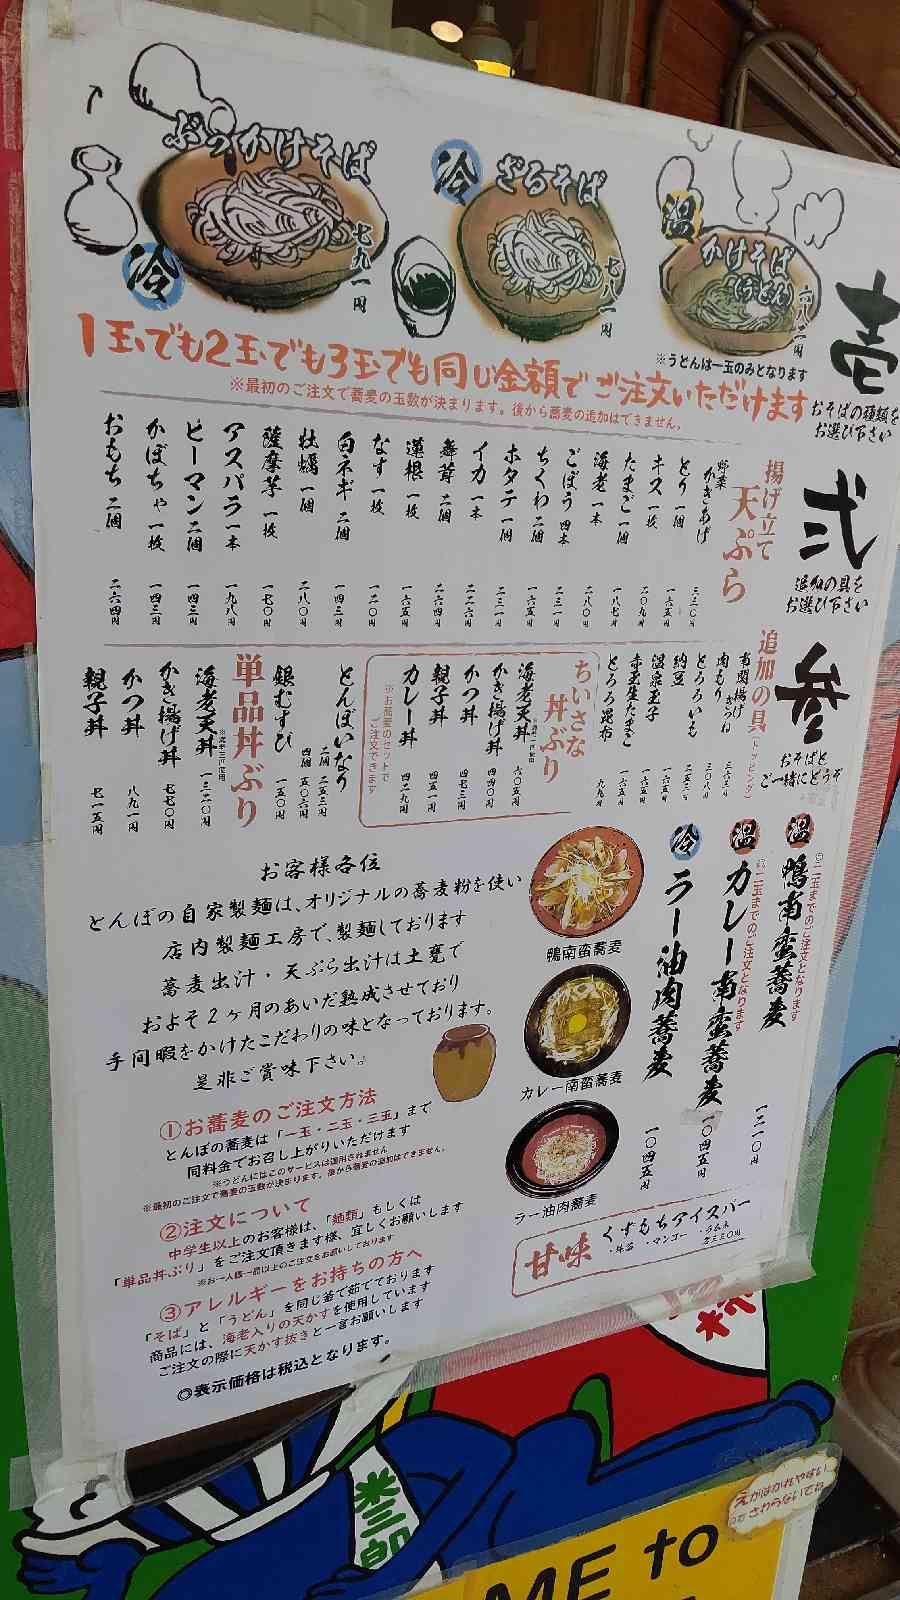 ぶっかけそば
冷
七九一円
冷
ざるそば
七八一円
温
かけそば
(うどん)
六八二円
※うどんは一玉のみとなります
1玉でも2玉でも3玉でも同じ金額でご注文いただけます
※最初のご注文で蕎麦の玉数が決まります。後から蕎麦の追加はできません。
壱
おそばの種類を
お選び下さい
弐
追加の具を
お選び下さい
参
おそばと
ご一緒にどうぞ
揚げ立て
天ぷら
野菜かきあげ 三三〇円
とり 一個 一六五円
キス 一枚 二〇九円
たまご 一個 一八七円
海老 一本 二八〇円
ごぼう 四本 二三一円
ちくわ 二個 一六五円
ホタテ 一個 二三一円
イカ 一本 二二六円
舞茸 二個 二六四円
蓮根 一枚 一六五円
なす 一枚 一二〇円
白ネギ 二個 一四三円
牡蠣 一個 二八〇円
薩摩芋 一枚 一七〇円
アスパラ 一本 一九八円
ピーマン 二個 一四三円
かぼちゃ 一枚 一四三円
おもち 二個 二六四円
追加の具(トッピング)
南関揚げきつね 三六三円
肉もり 三〇八円
とろろいも 二五三円
納豆 一六五円
温泉玉子 一六五円
赤玉生たまご 一六五円
とろろ昆布 九九円
ちいさな
丼ぶり
海老天丼 六〇五円
かき揚げ丼 四四〇円
かつ丼 四七三円
親子丼 四五一円
カレー丼 四二九円
※お蕎麦のセットで
ご注文できます
とんぼいなり
二個 二五三円
四個 五〇六円
銀むすび 一五〇円
単品丼ぶり
海老天丼 一三二〇円
かき揚げ丼 七七〇円
かつ丼 八九一円
親子丼 七一五円
温
鴨南蛮蕎麦
◎二玉までのご注文となります
一二一〇円
温
カレー南蛮蕎麦
◎二玉までのご注文となります
一〇四五円
冷
ラー油肉蕎麦
一〇四五円
鴨南蛮蕎麦
カレー南蛮蕎麦
ラー油肉蕎麦
お客様各位
とんぼの自家製麺は、オリジナルの蕎麦粉を使い
店内製麺工房で、製麺しております
蕎麦出汁・天ぷら出汁は土甕で
およそ2ヶ月のあいだ熟成させており
手間暇をかけたこだわりの味となっております。
是非ご賞味下さい。
①お蕎麦のご注文方法
とんぼの蕎麦は「一玉・二玉・三玉」まで
同料金でお召し上がりいただけます
※うどんにはこのサービスは適用されません
※最初のご注文で蕎麦の玉数が決まります。後から蕎麦の追加はできません。
②注文について
中学生以上のお客様は、「麺類」もしくは
「単品丼ぶり」をご注文頂きます様、宜しくお願いします
※お一人様一品以上のご注文をお願いしております
③アレルギーをお持ちの方へ
「そば」と「うどん」を同じ釜で茹でております
商品には、海老入りの天かすを使用しています
ご注文の際に天かす抜きと一言お願いします
◎表示価格は税込となります。
甘味
くずもちアイスバー
・抹茶 ・マンゴー ・ラムネ
各三三〇円
えがはがれやすい
のでさわらないでね
ME to